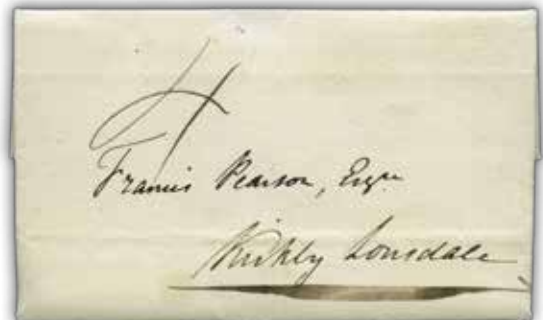 4
Francis Pearson, Esqre
Kirkby Lonsdale